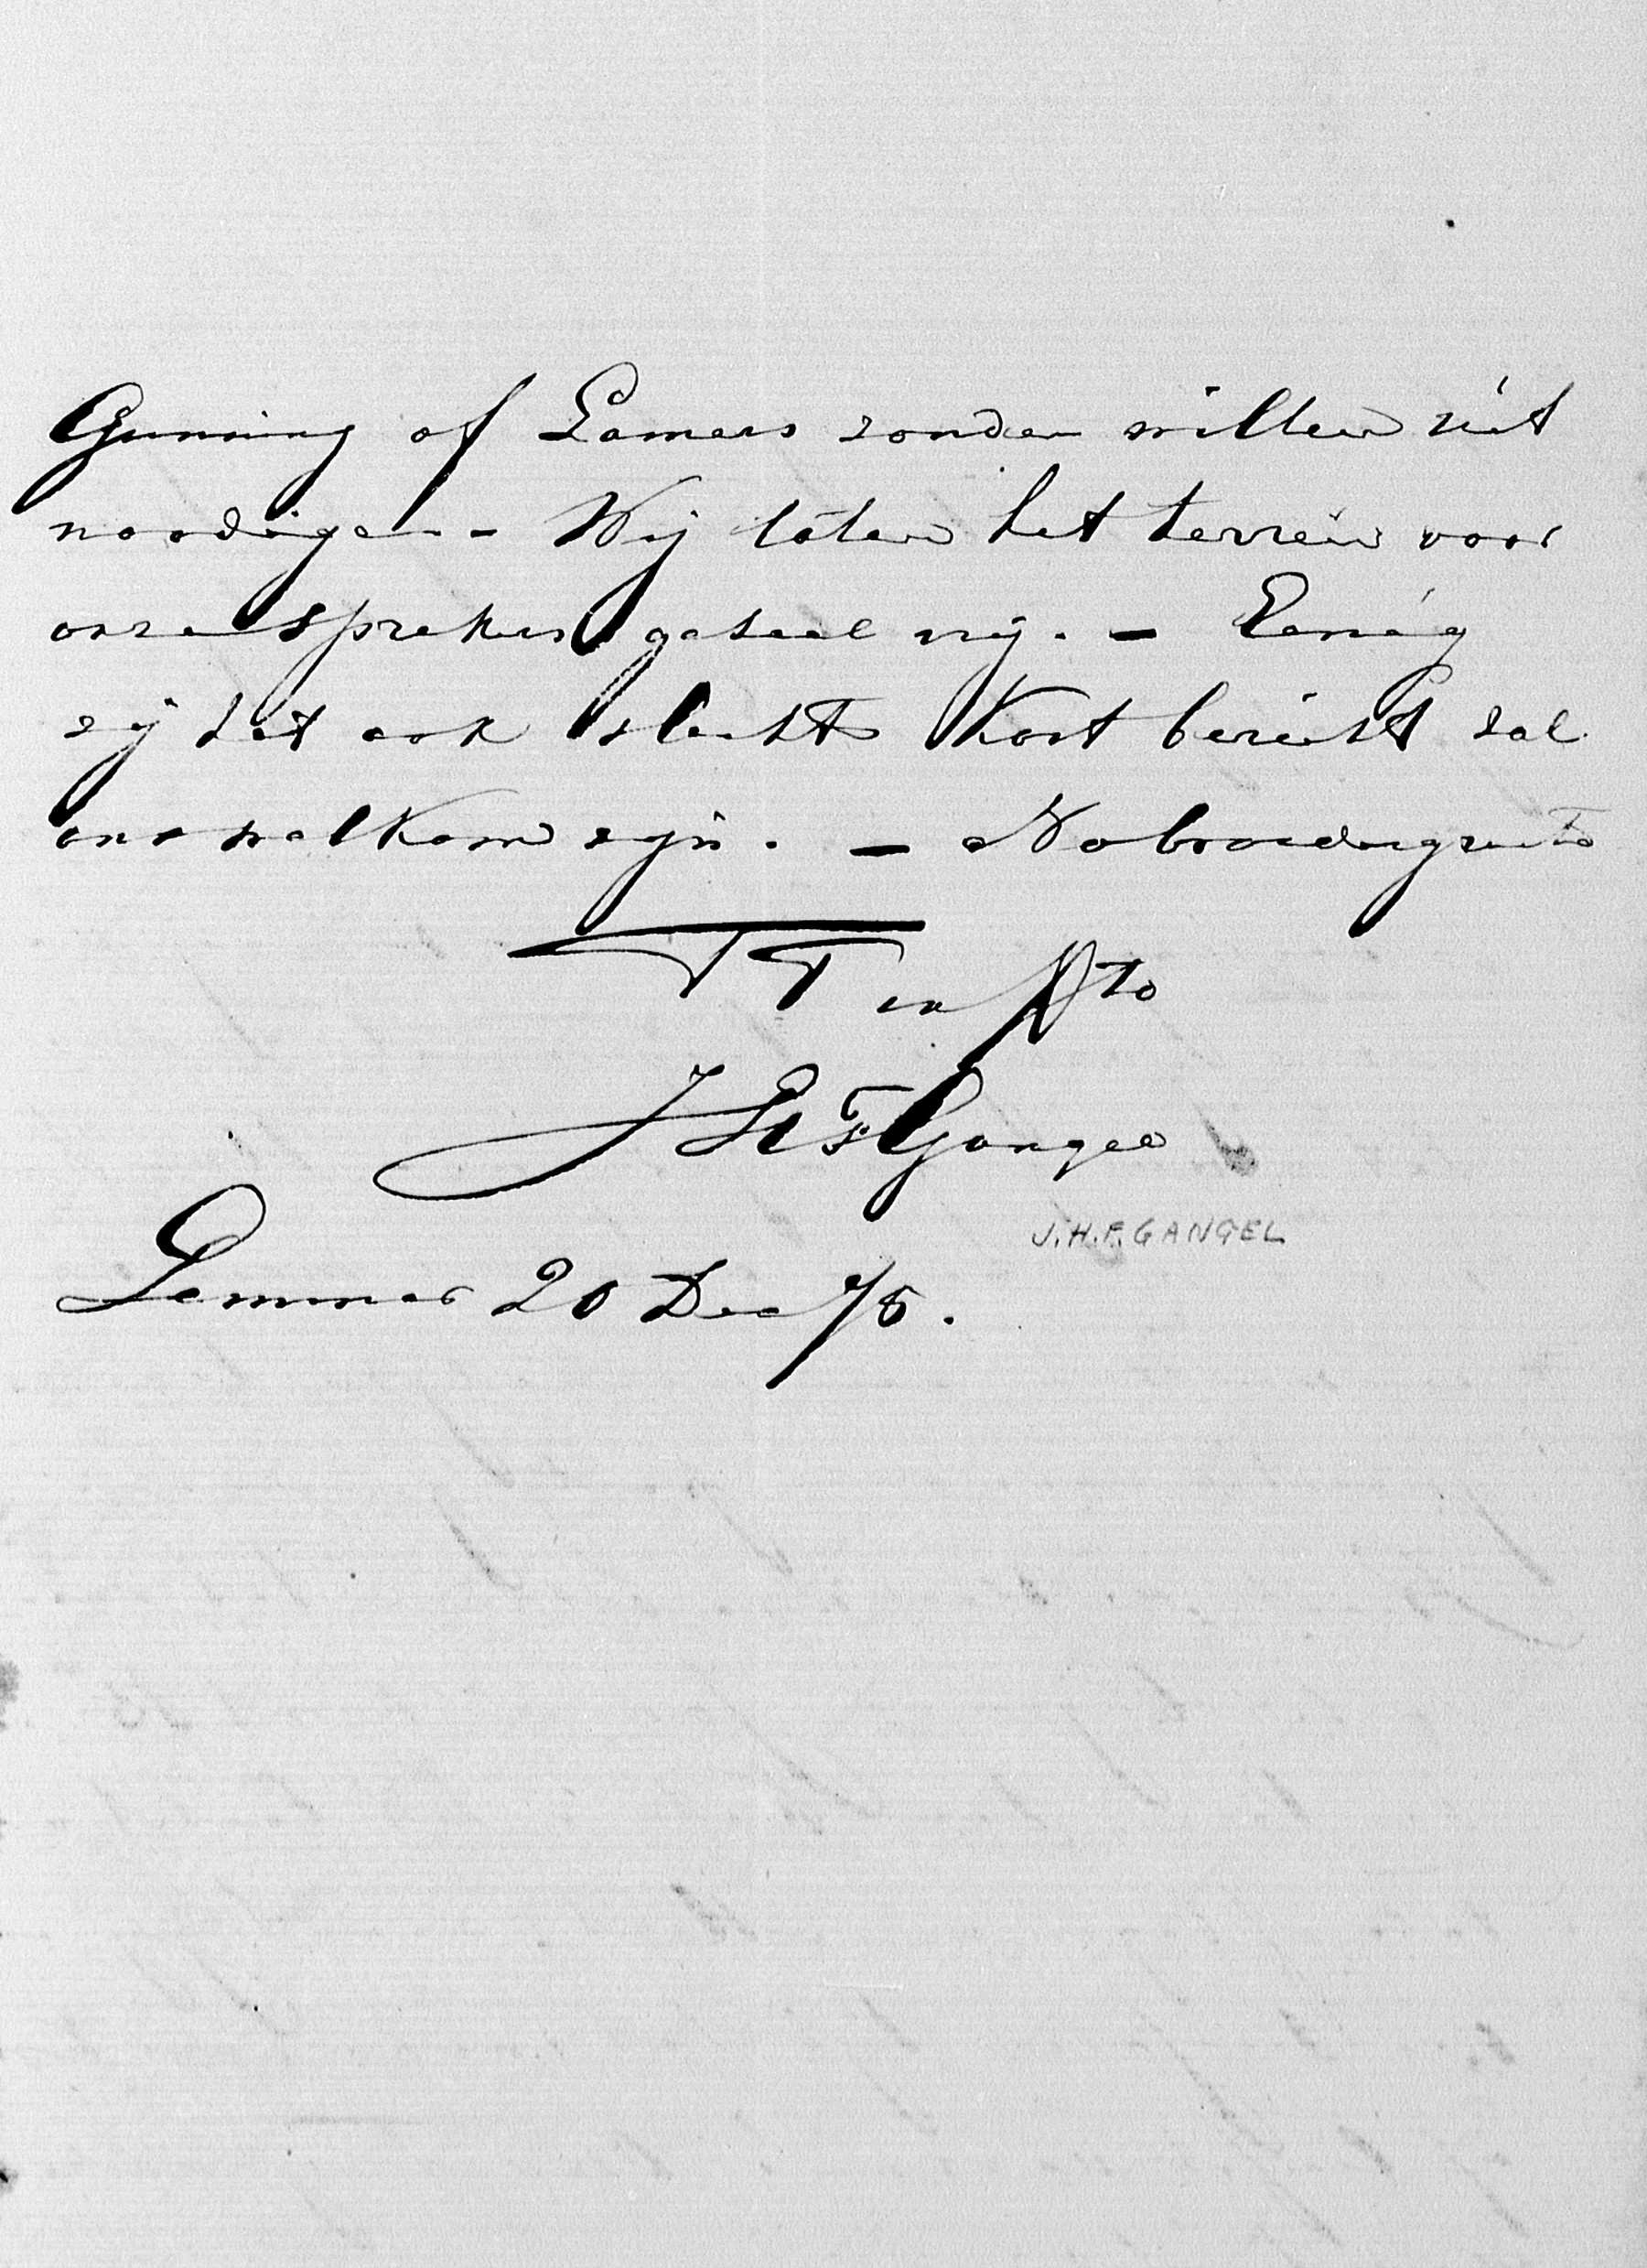 Gunning of Lamers zouden willen uit
noodigen - Wij laten het terrein voor
onze sprekers geheel vrij. - Eenig
zij het ook slechts kort bericht zal
ons welkom zijn. - Na broedergroete
TT in Xto
JHF Gangel
J.H.F. GANGEL
Lemmer 20 Dec 75.